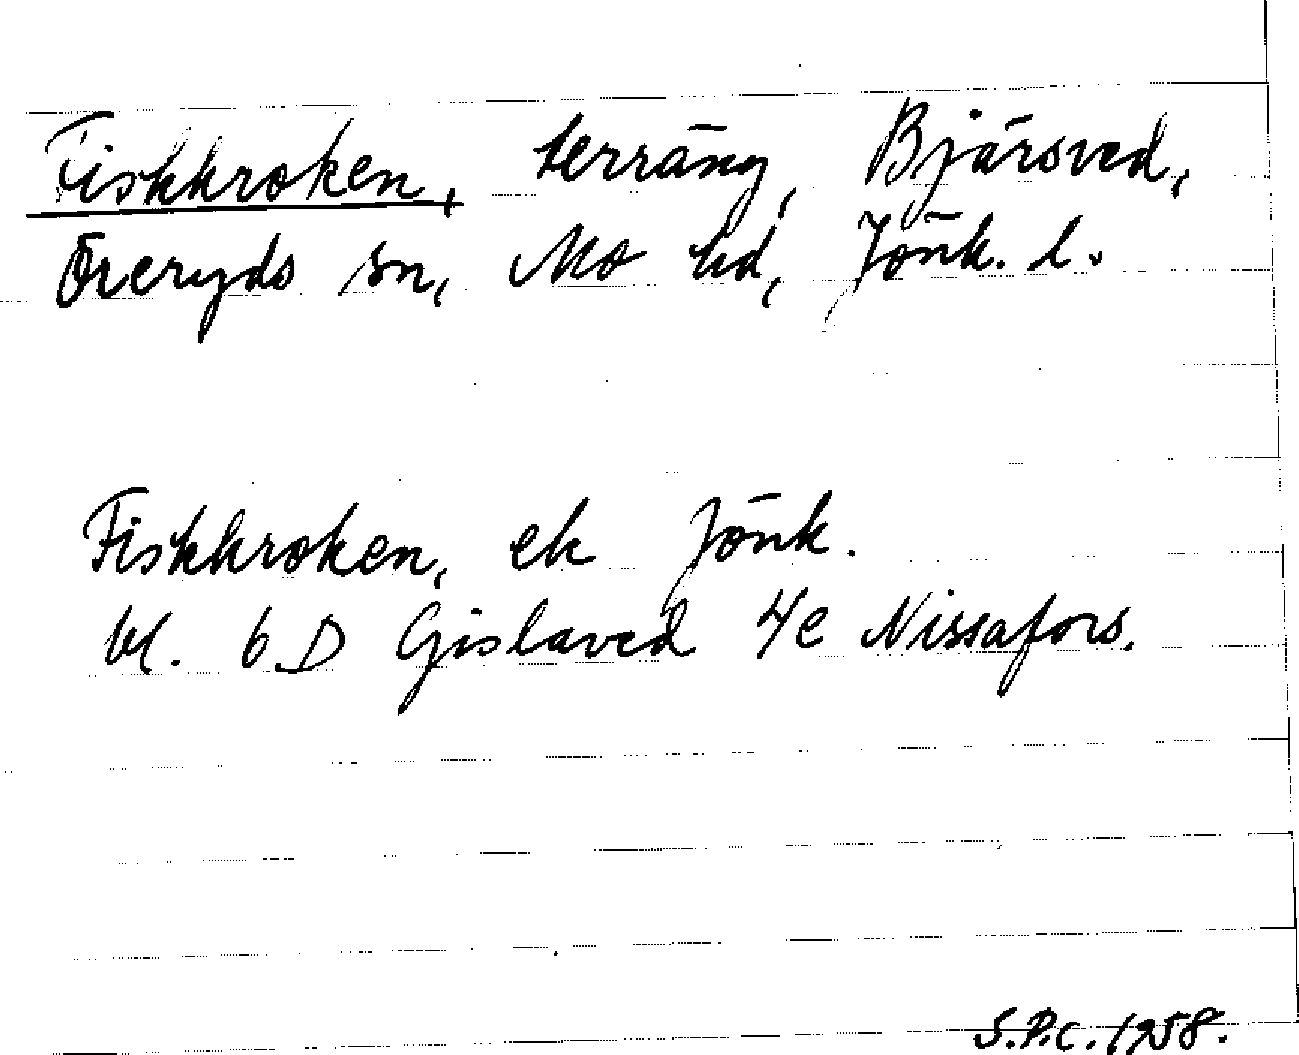 Fiskkroken, terräng, Bjärsved,
Öreryds sn, Mo hd, Jönk. l.
Fiskkroken, ek Jönk.
bl. 6.D Gislaved 4e Nissafors.
S.P.C. 1958.